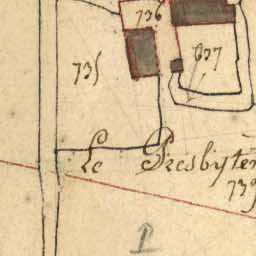 736
637
735
Le Presbyter
739
P